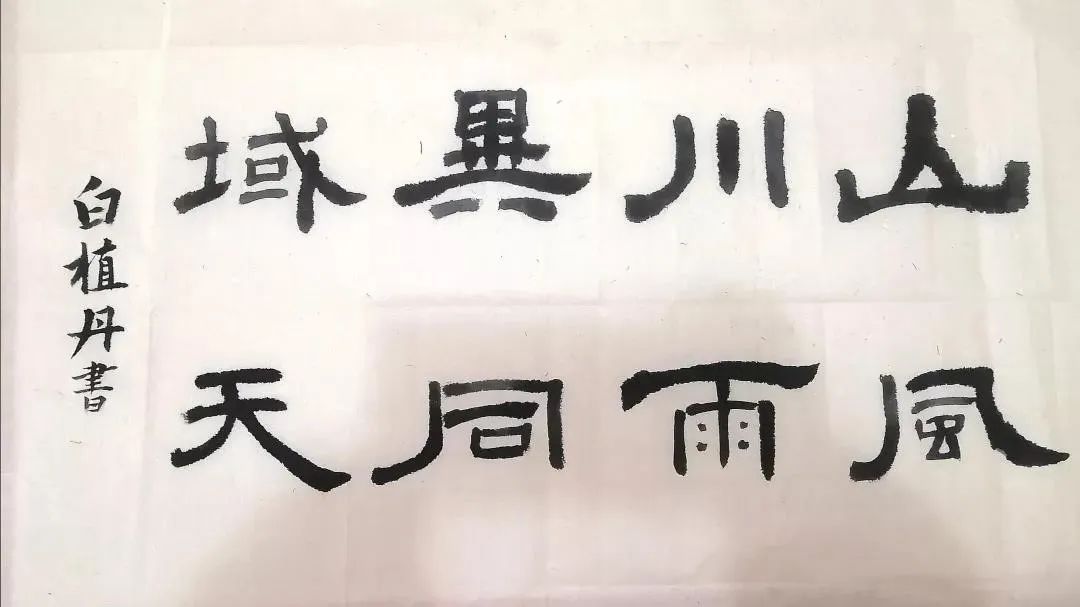 山川異域
風雨同天
白植丹書